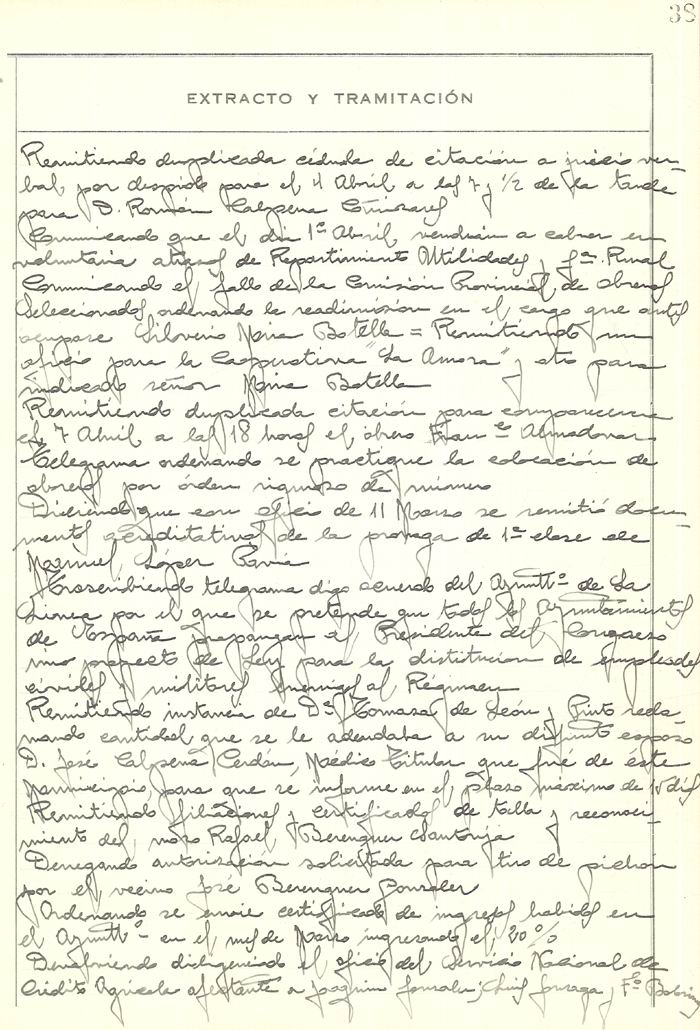 38
EXTRACTO Y TRAMITACIÓN
Remitiendo duplicada cédula de citación a juicio ver-
bal por despido para el 4 Abril a las 7 y 1/2 de la tarde
para D. Román Calpena
Comunicando que el dia 1º Abril vendrán a cobrar en
voluntaria atrasos de Repartimiento Utilidades y Gª Rural
Comunicando el fallo de la Comisión Provincial de obreros
seleccionados ordenando la readimisión en el cargo que antes
ocupase Silverio Maria Botella = Remitiendo un
oficio para la Cooperativa "La Amora" y otro para
indicado señor Maria Botella
Remitiendo duplicada citación para comparecencia
el 7 Abril a las 18 horas el obrero Franco Almadovar
Telegrama ordenando se practique la colocación de
obreros por órden riguroso de número
Diciendo que con oficio de 11 Marzo se remitió docu-
mentos acreditativos de la prórroga de 1ª clase de
Manuel López Pavia
Trascribiendo telegrama digo acuerdo del Ayuntto de La
Linea por el que se pretende que todos los Ayuntamientos
de España propongan al Presidente del Congreso
un proyecto de Ley para la distitucion de empleados
civiles y militares enemigos al Régimen
Remitiendo instancia de Dª Tomasa de León y Pinto recla-
mando cantidad que se le adeudaba a su difunto esposo
D. José Calpena Cerdán, Médico Titular que fué de éste
Municipio, para que se informe en el plazo máximo de 15 dias
Remitiendo filiaciones y certificados de talla y reconoci-
miento del mozo Rafael Berenguer Santonja
Denegando autorización solicitada para tiro de pichon
por el vecino José Berenguer Gonzalez
Ordenando se envie certificado de ingresos habidos en
el Ayuntto en el mes de Marzo ingresando el 20 %
Devolviendo diligenciado el oficio del Servicio Nacional de
Crédito Agricola afectante a Joaquin Gonzalez, Luis Gonzaga y Fco